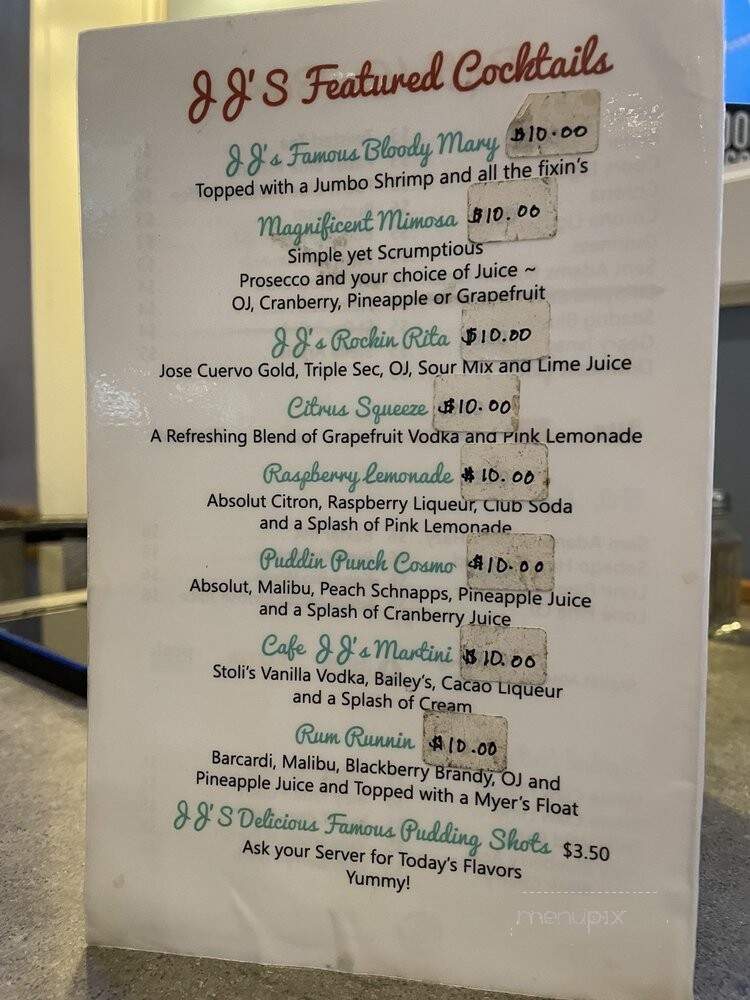 JJ'S Featured Cocktails
JJ's Famous Bloody Mary $10.00
Topped with a Jumbo Shrimp and all the fixin's
Magnificent Mimosa $10.00
Simple yet Scrumptious
Prosecco and your choice of Juice ~
OJ, Cranberry, Pineapple or Grapefruit
JJ's Rockin Rita $10.00
Jose Cuervo Gold, Triple Sec, OJ, Sour Mix and Lime Juice
Citrus Squeeze $10.00
A Refreshing Blend of Grapefruit Vodka and Pink Lemonade
Raspberry Lemonade $10.00
Absolut Citron, Raspberry Liqueur, Club Soda
and a Splash of Pink Lemonade
Puddin Punch Cosmo $10.00
Absolut, Malibu, Peach Schnapps, Pineapple Juice
and a Splash of Cranberry Juice
Cafe JJ's Martini $10.00
Stoli's Vanilla Vodka, Bailey's, Cacao Liqueur
and a Splash of Cream
Rum Runnin $10.00
Barcardi, Malibu, Blackberry Brandy, OJ and
Pineapple Juice and Topped with a Myer's Float
JJ'S Delicious Famous Pudding Shots $3.50
Ask your Server for Today's Flavors
Yummy!
menupix